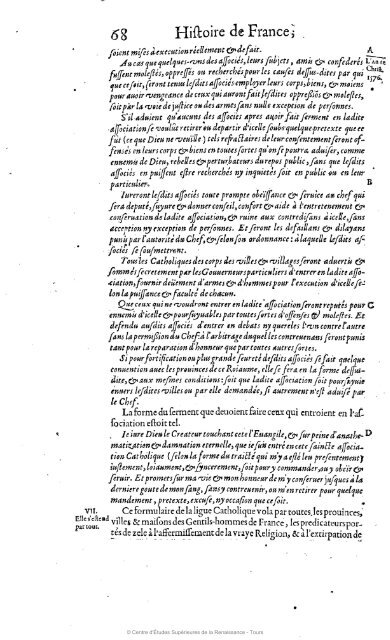 68 Histoire de France,
soient mises à execution réellement & de fait.
A
L'An de
Christ,
1576.
Au cas que quelques-vns des associés, leurs subjets, amis & confederés
fussent molestés, oppressés ou recherchés pour les causes dessus-dites par qui
que ce soit, seront tenus lesdits associés employer leurs corps, biens, & moiens
pour auoir vengeance de ceux qui auront fait lesdites oppressiõs & molestes,
soit par la voie de justice ou des armes sans nulle exception de personnes.
S'il aduient qu'aucuns des associés apres auoir fait serment en ladite
association se voulut retirer ou departir d'icelle soubs quelque pretexte que ce
fut (ce que Dieu ne vueille) tels refractaires de leur consentement seront of-
fensés en leurs corps & biens en toutes sortes qu'on se pourra aduiser, comme
ennemis de Dieu, rebelles & perturbateurs du repos public, sans que lesdits
associés en puissent estre recherchés ny inquietés soit en public ou en leur
particulier.
B
Iureront lesdits associés toute prompte obeissance & seruice au chef qui
sera deputé, suyure & donner conseil, confort & aide à l'entretenement &
conseruation de ladite association, & ruine aux contredisans à icelle, sans
acception ny exception de personnes. Et seront les defaillans & dilayans
punis par l'autorité du Chef, & selon son ordonnance: à laquelle lesdits as-
sociés se sousmettront.
Tous les Catholiques des corps des villes & villages seront aduertis &
sommés secretement par les Gouuerneurs particuliers d'entrer en ladite asso-
ciation, fournir deüement d'armes & d'hommes pour l'execution d'icelle se-
lon la puissance & faculté de chacun.
Que ceux qui ne voudront entrer en ladite association seront reputés pour
C
ennemis d'icelle & poursuyuables par toutes sortes d'offenses & molestes. Et
defendu ausdits associés d'entrer en debats ny querelles l'vn contre l'autre
sans la permission du Chef: à l'arbitrage duquel les contreuenans seront punis
tant pour la reparation d'honneur que par toutes autres sortes.
Si pour fortification ou plus grande seureté desdits associés se fait quelque
conuention auec les prouinces de ce Roiaume, elle se fera en la forme dessus-
dite, & aux mesmes conditions: soit que ladite association soit poursuyuie
enuers lesdites villes ou par elle demandée, si autrement n'est aduisé par
le Chef.
La forme du serment que deuoient faire ceux qui entroient en l'as-
sociation estoit tel.
Ie iure Dieu le Createur touchant cet Euangile, & sur peine d'anathe-
D
matization & damnation eternelle, que ie suis entré en ceste saincte associa-
tion Catholique (selon la forme du traicté qui m'y a esté leu presentement)
iustement, loiaument, & syncerement, soit pour y commander, ou y obeir &
seruir. Et promets sur ma vie & mon honneur de m'y conseruer jusques à la
derniere goute de mon sang, sans y contreuenir, ou m'en retirer pour quelque
mandement, pretexte, excuse, ny occasion que ce soit.
VII.
Elle s'estend
par tout.
Ce formulaire de la ligue Catholique vola par toutes les prouinces,
villes & maisons des Gentils-hommes de France, les predicateurs por-
tés de zele à l'affermissement de la vraye Religion, & à l'extirpation de
© Centre d'Études Supérieures de la Renaissance - Tours